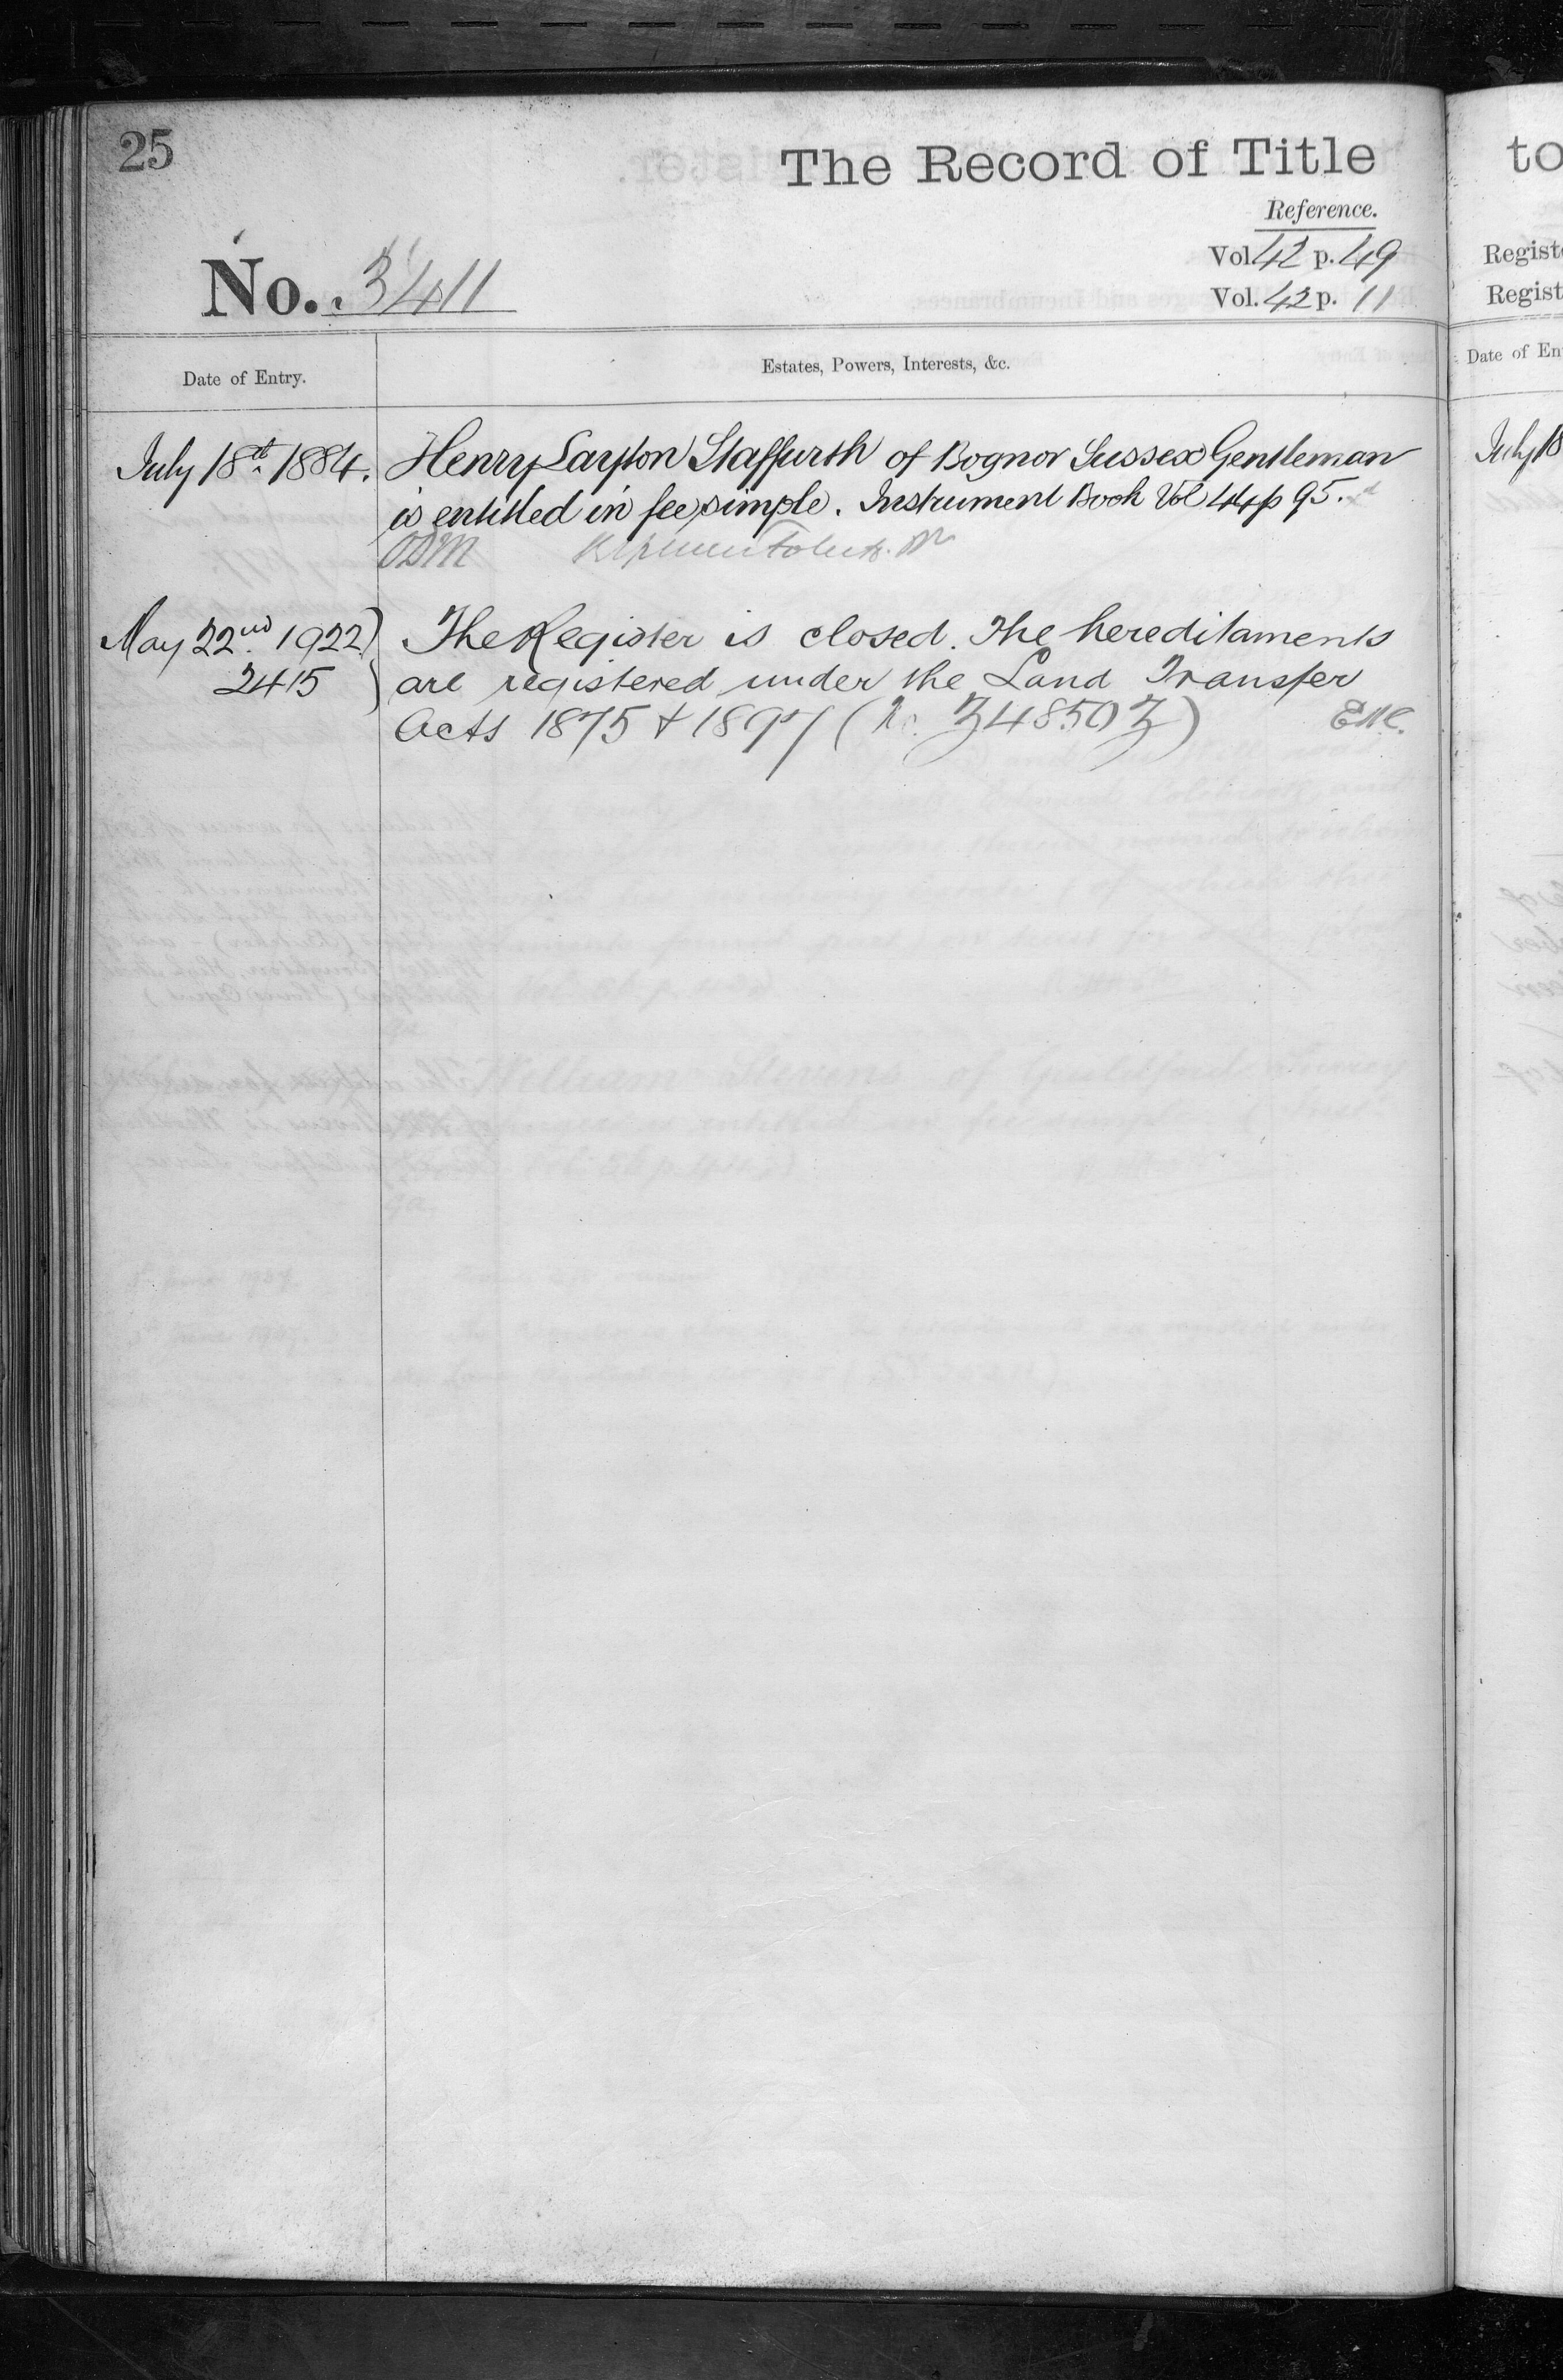 25
The Record of Title
Reference.
No. 3411
Vol. 42 p. 49
Vol. 42 p. 11
Date of Entry.
Estates, Powers, Interests, &c.
July 18th 1884. Henry Layton Staffurth of Bognor Sussex Gentleman
is entitled in fee simple. Instrument Book Vol 44 p 95.
May 22nd 1922 The Register is closed. The hereditaments
2415 are registered under the Land Transfer
Acts 1875 & 1897 (No. 348503)
to
Registe
Regist
Date of En
July 18